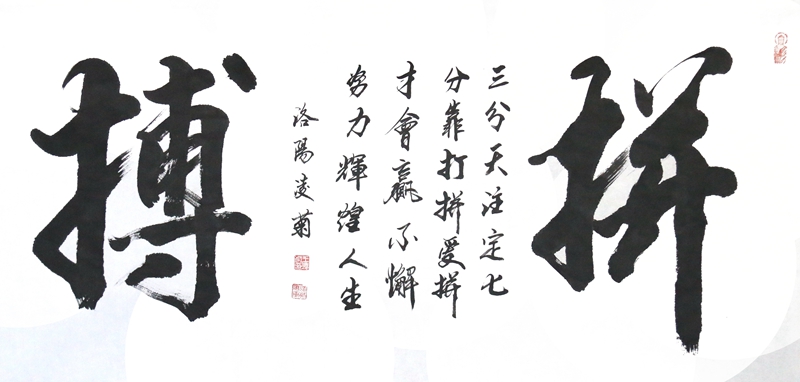 拼
三分天注定七
分靠打拼爱拼
才會贏不懈
努力輝煌人生
洛陽凌菊
搏